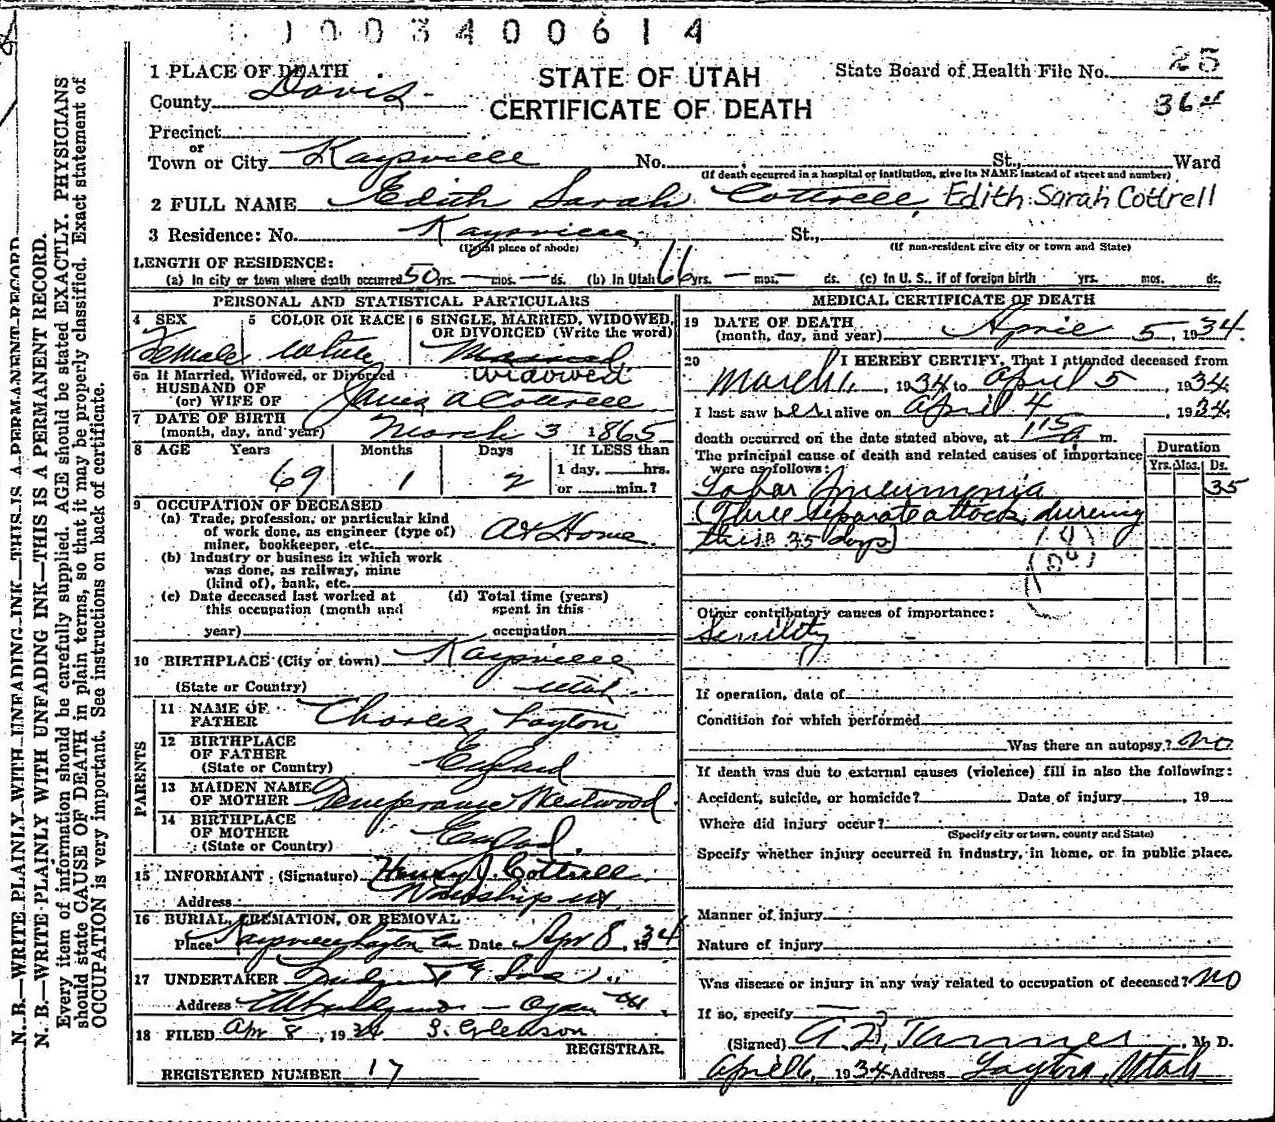 1003400614
1 PLACE OF DEATH
STATE OF UTAH
CERTIFICATE OF DEATH
State Board of Health File No. 25
364
County Davis
Precinct
or
Town or City Kaysville No. St., Ward
(If death occurred in a hospital or institution, give its NAME instead of street and number)
2 FULL NAME Edith Sarah Cottrell Edith Sarah Cottrell
3 Residence: No. Kaysville St.,
(Usual place of abode) (If non-resident give city or town and State)
LENGTH OF RESIDENCE:
(a) In city or town where death occurred 50 yrs. — mos. — ds. (b) In Utah 66 yrs. — mos. — ds. (c) In U. S., if of foreign birth yrs. mos. ds.
PERSONAL AND STATISTICAL PARTICULARS
4 SEX Female
5 COLOR OR RACE White
6 SINGLE, MARRIED, WIDOWED, OR DIVORCED (Write the word) Married
Widowed
6a If Married, Widowed, or Divorced
HUSBAND OF
(or) WIFE OF James A Cottrell
7 DATE OF BIRTH
(month, day, and year) March 3 1865
8 AGE Years 69 Months 1 Days 2
If LESS than
1 day, hrs.
or min.?
9 OCCUPATION OF DECEASED
(a) Trade, profession, or particular kind
of work done, as engineer (type of)
miner, bookkeeper, etc. At Home
(b) Industry or business in which work
was done, as railway, mine
(kind of), bank, etc.
(c) Date deceased last worked at
this occupation (month and
year)
(d) Total time (years)
spent in this
occupation
10 BIRTHPLACE (City or town) Kaysville
(State or Country) Utah
PARENTS
11 NAME OF
FATHER Charles Layton
12 BIRTHPLACE
OF FATHER
(State or Country) England
13 MAIDEN NAME
OF MOTHER Temperance Westwood
14 BIRTHPLACE
OF MOTHER
(State or Country) England
15 INFORMANT (Signature) Henry J. Cottrell
Address
16 BURIAL, CREMATION, OR REMOVAL
Place Kaysville Layton Date Apr 8, 1934
17 UNDERTAKER
Address
18 FILED Apr 8, 1934
REGISTRAR.
REGISTERED NUMBER 17
MEDICAL CERTIFICATE OF DEATH
19 DATE OF DEATH
(month, day, and year) April 5, 1934.
20 I HEREBY CERTIFY, That I attended deceased from
March 1, 1934 to April 5, 1934.
I last saw her alive on April 4, 1934.
death occurred on the date stated above, at 1 15 a m.
The principal cause of death and related causes of importance
were as follows:
Duration
Yrs. Mos. Ds.
Lobar Pneumonia 35
(Three separate attacks during
this 35 days)
Other contributory causes of importance:
Senility
If operation, date of
Condition for which performed
Was there an autopsy? no
If death was due to external causes (violence) fill in also the following:
Accident, suicide, or homicide? Date of injury , 19
Where did injury occur?
(Specify city or town, county and State)
Specify whether injury occurred in industry, in home, or in public place.
Manner of injury
Nature of injury
Was disease or injury in any way related to occupation of deceased? NO
If so, specify
(Signed) A. D. Tanner M. D.
April 6, 1934 Address Layton, Utah
N. B.—WRITE PLAINLY WITH UNFADING INK—THIS IS A PERMANENT RECORD
N. B.—WRITE PLAINLY WITH UNFADING INK—THIS IS A PERMANENT RECORD.
Every item of information should be carefully supplied. AGE should be stated EXACTLY. PHYSICIANS
should state CAUSE OF DEATH in plain terms, so that it may be properly classified. Exact statement of
OCCUPATION is very important. See instructions on back of certificate.